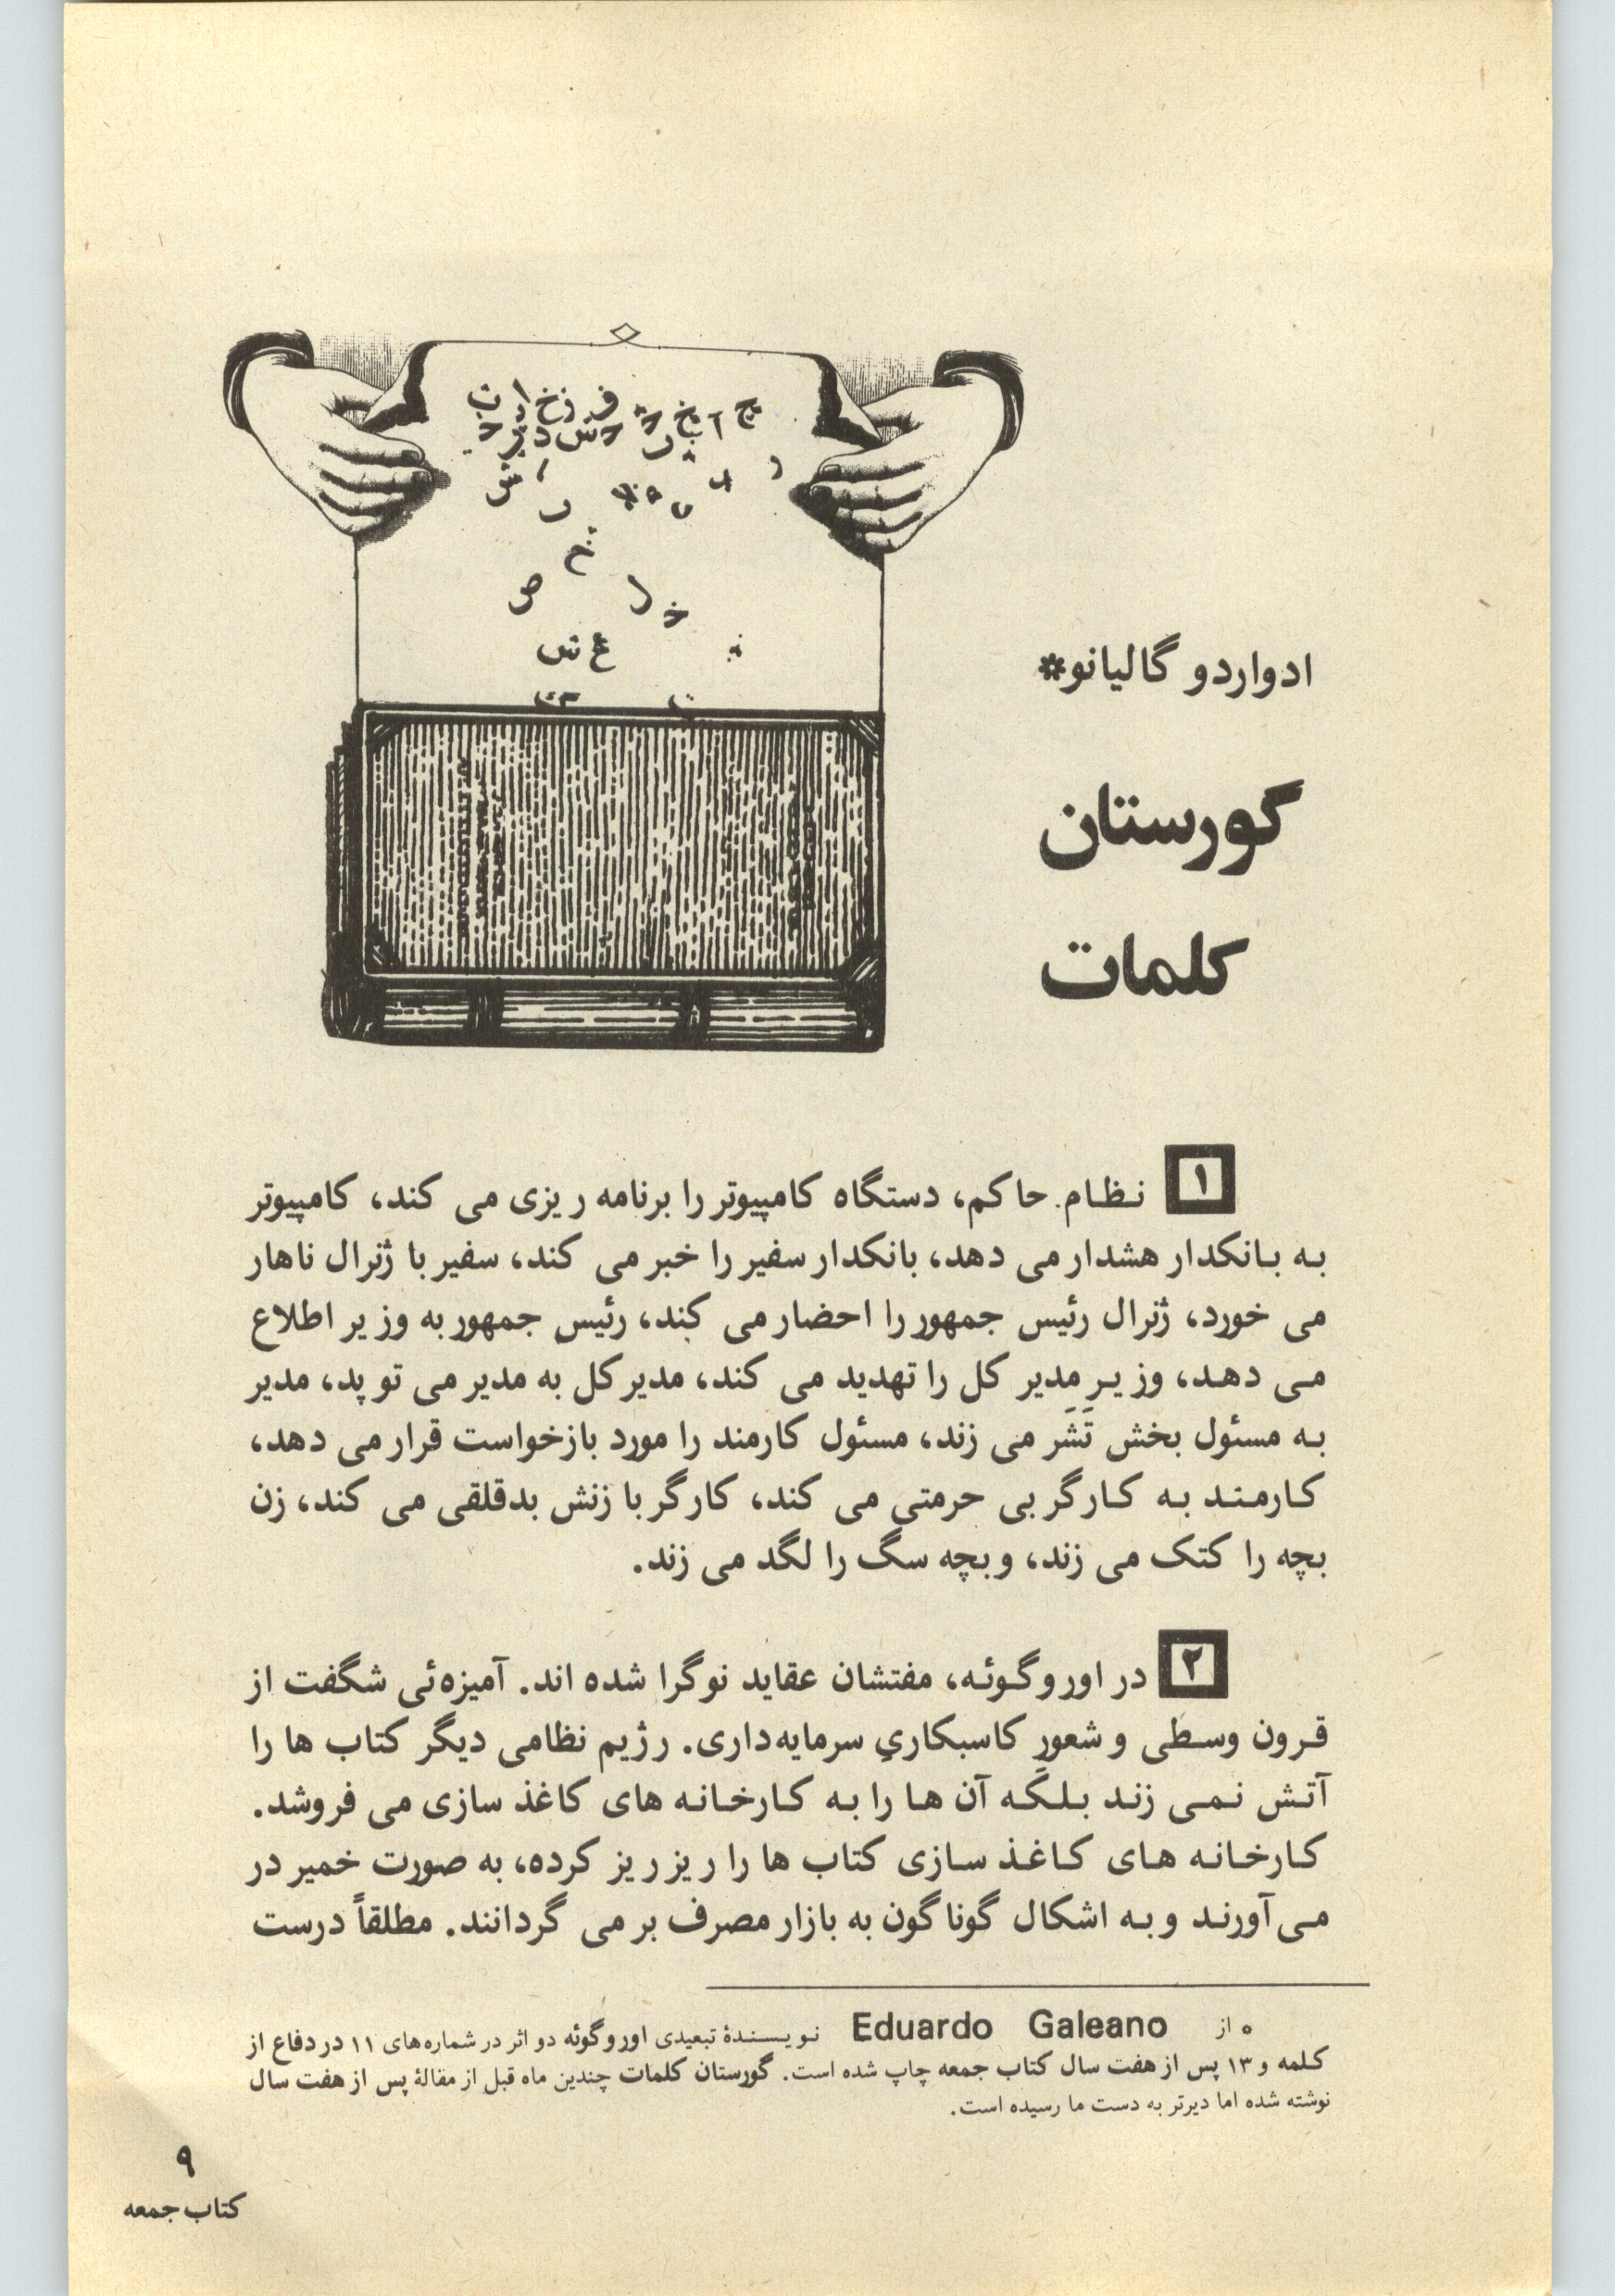 ادواردو گالیانو*
گورستان
کلمات
۱ نظام حاکم، دستگاه کامپیوتر را برنامه ریزی می کند، کامپیوتر
به بانکدار هشدار می دهد، بانکدار سفیر را خبر می کند، سفیر با ژنرال ناهار
می خورد، ژنرال رئیس جمهور را احضار می کند، رئیس جمهور به وزیر اطلاع
می دهد، وزیر مدیر کل را تهدید می کند، مدیر کل به مدیر می توپد، مدیر
به مسئول بخش تَشَر می زند، مسئول کارمند را مورد بازخواست قرار می دهد،
کارمند به کارگر بی حرمتی می کند، کارگر با زنش بدقلقی می کند، زن
بچه را کتک می زند، و بچه سگ را لگد می زند.
۲ در اوروگوئه، مفتشان عقاید نوگرا شده اند. آمیزه‌ئی شگفت از
قرون وسطی و شعورِ کاسبکاریِ سرمایه‌داری. رژیم نظامی دیگر کتاب ها را
آتش نمی زند بلکه آن ها را به کارخانه های کاغذ سازی می فروشد.
کارخانه های کاغذ سازی کتاب ها را ریز ریز کرده، به صورت خمیر در
می‌آورند و به اشکال گوناگون به بازار مصرف بر می گردانند. مطلقاً درست
* از Eduardo Galeano نویسندهٔ تبعیدی اوروگوئه دو اثر در شماره‌های ۱۱ در دفاع از
کلمه و ۱۳ پس از هفت سال کتاب جمعه چاپ شده است. گورستان کلمات چندین ماه قبل از مقالهٔ پس از هفت سال
نوشته شده اما دیرتر به دست ما رسیده است.
۹
کتاب جمعه